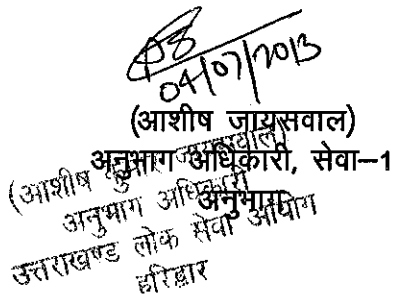 04/07/2013
(आशीष जायसवाल)
अनुभाग अधिकारी, सेवा–1
अनुभाग
(आशीष कुमार जायसवाल)
अनुभाग अधिकारी
उत्तराखण्ड लोक सेवा आयोग
हरिद्वार